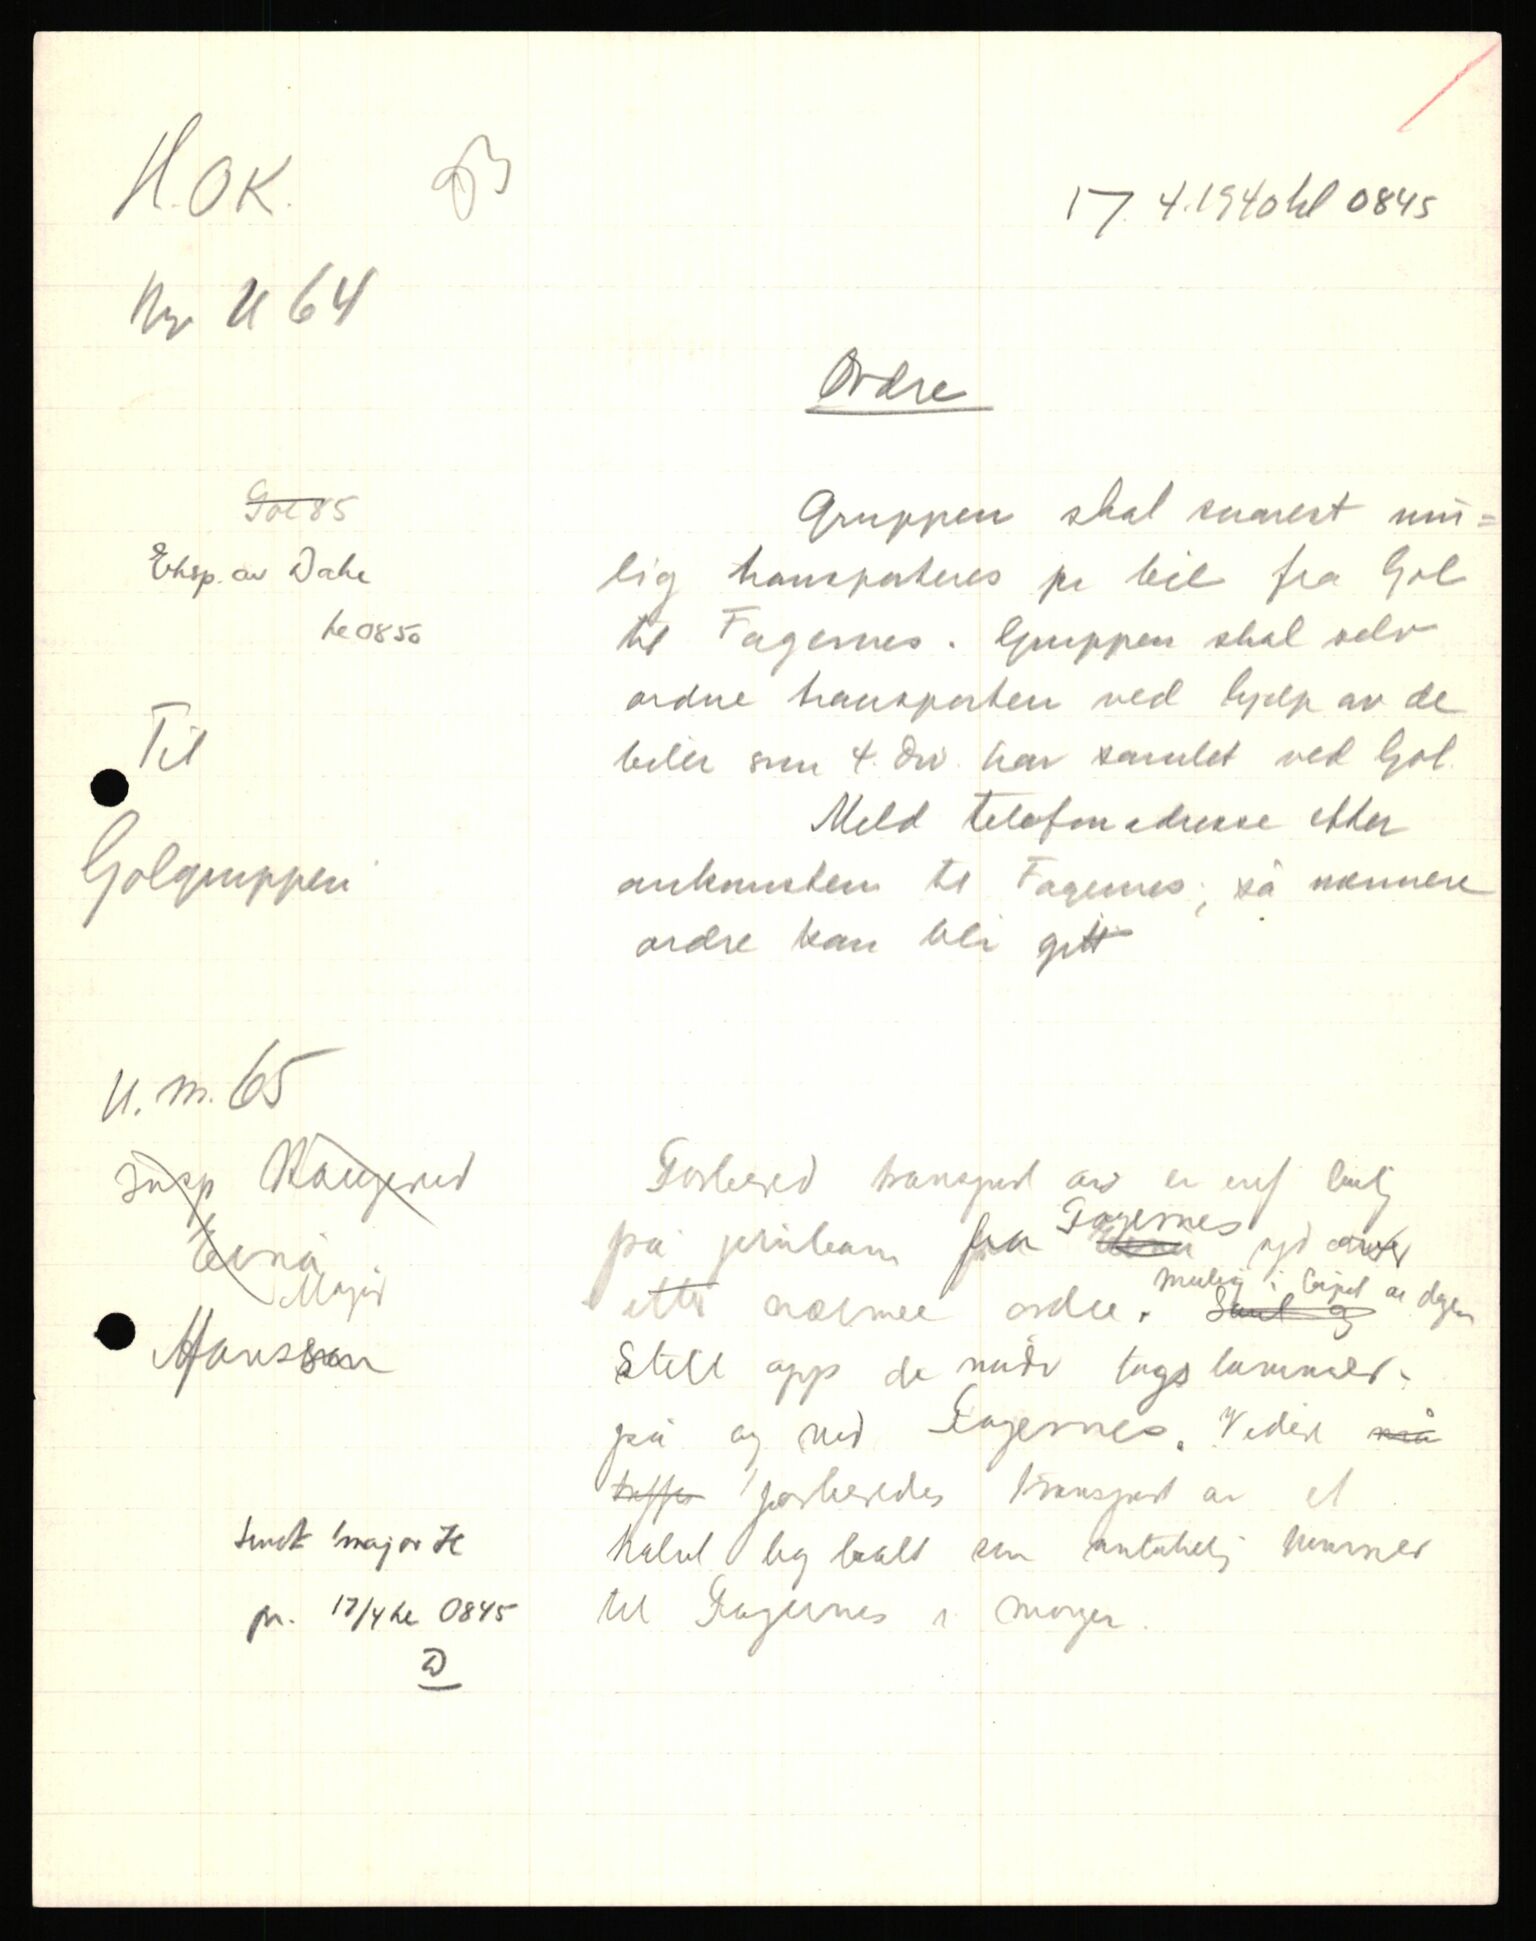 H.OK.
17. 4. 1940 kl 0845
Nr U 64
Ordre
Gol 85
Eksp. av Dahl
kl 0850
Til
Golgruppen
Gruppen skal snarest mu=
lig transporteres pr bil fra Gol
til Fagernes. Gruppen skal selv
ordne transporten ved hjelp av de
biler som 4. Div. har samlet ved Gol.
Meld telefonadresse etter
ankomsten til Fagernes; så nærmere
ordre kan bli gitt
U. m. 65
Insp
Elnå
Major
Hansson
Forbered transport av en inf batj
på jernbane fra Fagernes
etter nærmere ordre. mulig i løpet av dagen
Still opp de nødv togs
på og ved Fagernes. Videre må
treffes forberedes transport av et
halvt lag batt som antakelig kommer
til Fagernes i morgen.
Sendt major H
pr. 17/4 kl 0845
D